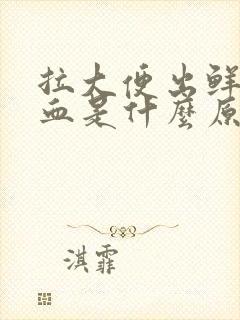 拉大便出鲜
血是什麼原
淇霏